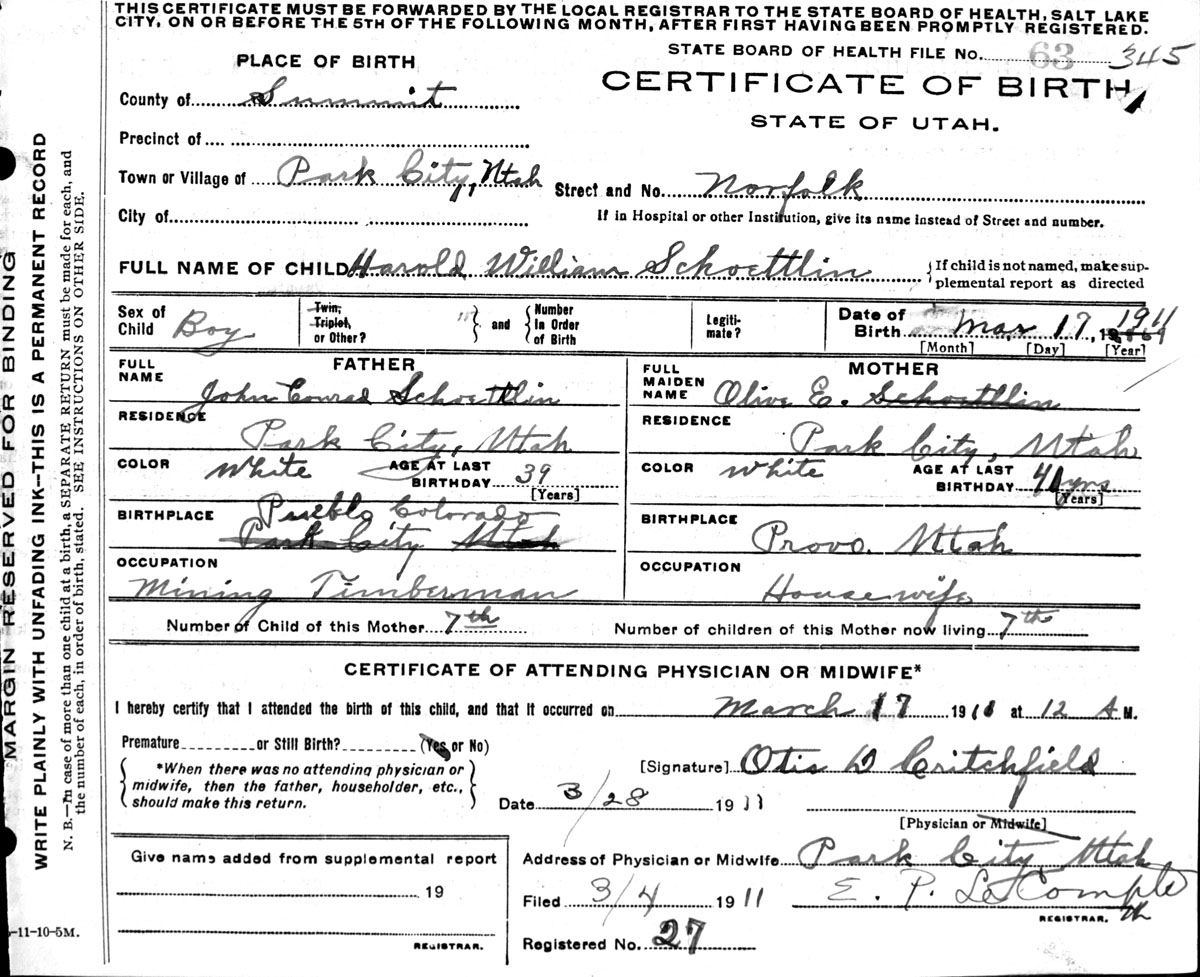 THIS CERTIFICATE MUST BE FORWARDED BY THE LOCAL REGISTRAR TO THE STATE BOARD OF HEALTH, SALT LAKE
CITY, ON OR BEFORE THE 5TH OF THE FOLLOWING MONTH, AFTER FIRST HAVING BEEN PROMPTLY REGISTERED.
STATE BOARD OF HEALTH FILE No. 63 345
PLACE OF BIRTH
CERTIFICATE OF BIRTH
County of Summit
STATE OF UTAH.
Precinct of
Town or Village of Park City, Utah Street and No. Norfolk
City of
If in Hospital or other Institution, give its name instead of Street and number.
FULL NAME OF CHILD Harold William Schoettlin
If child is not named, make sup-
plemental report as directed
Sex of Child Boy
Twin, Triplet, or Other?
and
Number In Order of Birth
Legiti-
mate?
Date of Birth Mar 17, 1911
[Month] [Day] [Year]
FATHER
FULL NAME John Conrad Schoettlin
RESIDENCE Park City, Utah
COLOR White AGE AT LAST BIRTHDAY 39
[Years]
BIRTHPLACE Pueblo Colorado
Park City Utah
OCCUPATION
Mining Timberman
MOTHER
FULL MAIDEN NAME Olive E. Schoettlin
RESIDENCE
Park City, Utah
COLOR White AGE AT LAST BIRTHDAY 40 yrs
[Years]
BIRTHPLACE
Provo. Utah
OCCUPATION
Housewife
Number of Child of this Mother 7th Number of children of this Mother now living 7th
CERTIFICATE OF ATTENDING PHYSICIAN OR MIDWIFE*
I hereby certify that I attended the birth of this child, and that it occurred on March 17 1911 at 12 A M.
Premature or Still Birth? (Yes or No)
*When there was no attending physician or
midwife, then the father, householder, etc.,
should make this return.
[Signature] Otis D Critchfield
Date 3/28 1911
[Physician or Midwife]
Give name added from supplemental report
19
REGISTRAR.
Address of Physician or Midwife Park City Utah
Filed 3/4 1911 E. P. Le Compte
REGISTRAR.
Registered No. 27
-11-10-5M.
MARGIN RESERVED FOR BINDING
WRITE PLAINLY WITH UNFADING INK--THIS IS A PERMANENT RECORD
N. B.—In case of more than one child at a birth, a SEPARATE RETURN must be made for each, and
the number of each, in order of birth, stated. SEE INSTRUCTIONS ON OTHER SIDE.